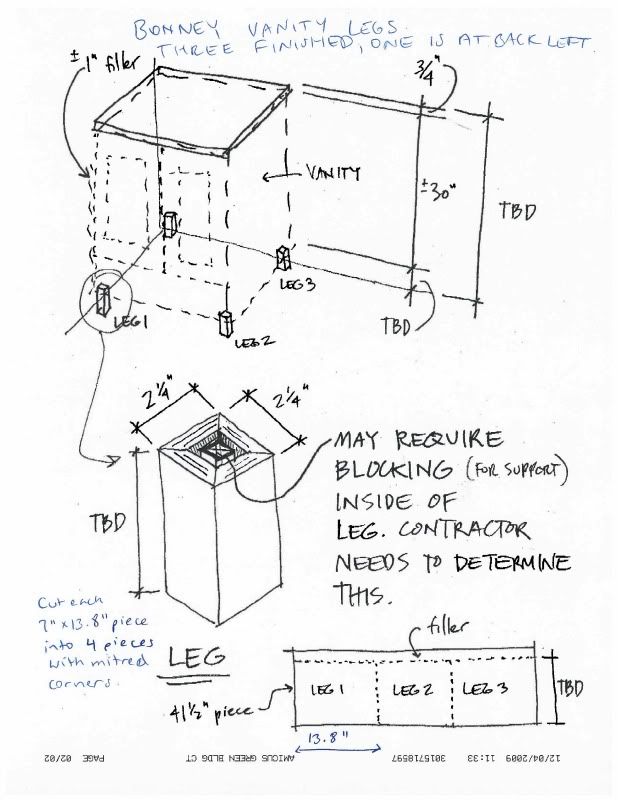 BONNEY VANITY LEGS.
THREE FINISHED, ONE IS AT BACK LEFT.
± 1" filler
3/4"
VANITY
±30"
TBD
LEG 3
LEG1
LEG 2
TBD
2 1/4"
2 1/4"
MAY REQUIRE
BLOCKING (FOR SUPPORT)
INSIDE OF
LEG. CONTRACTOR
NEEDS TO DETERMINE
THIS.
TBD
Cut each
7" x 13.8" piece
into 4 pieces
with mitred
corners.
LEG
filler
LEG 1
LEG 2
LEG 3
TBD
41 1/2" piece
13.8"
12/04/2009 11:33 3015710597 AMICUS GREEN BLDG CT PAGE 02/02